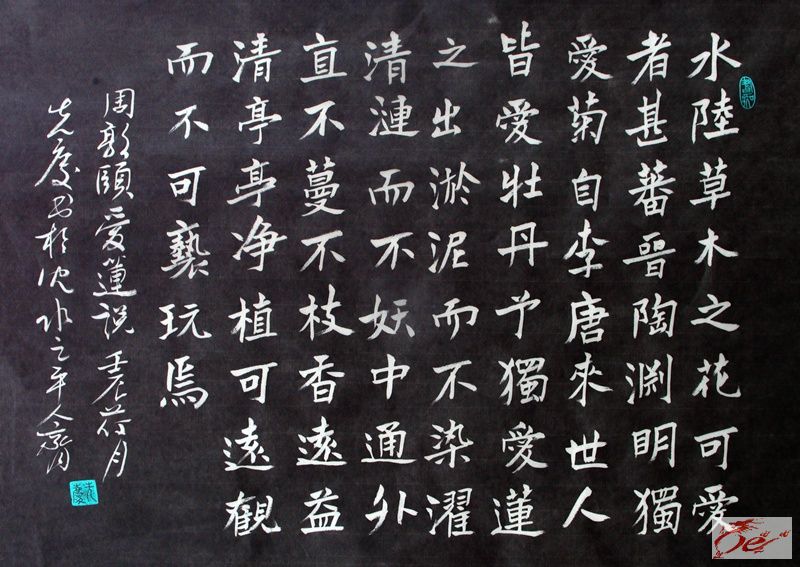 水陸草木之花可愛
者甚蕃晉陶渊明獨
愛菊自李唐來世人
皆愛牡丹予獨愛蓮
之出淤泥而不染濯
清漣而不妖中通外
直不蔓不枝香遠益
清亭亭净植可遠觀
而不可褻玩焉
周敦頤愛蓮説 壬辰荷月
慶书於沈水之平人齋